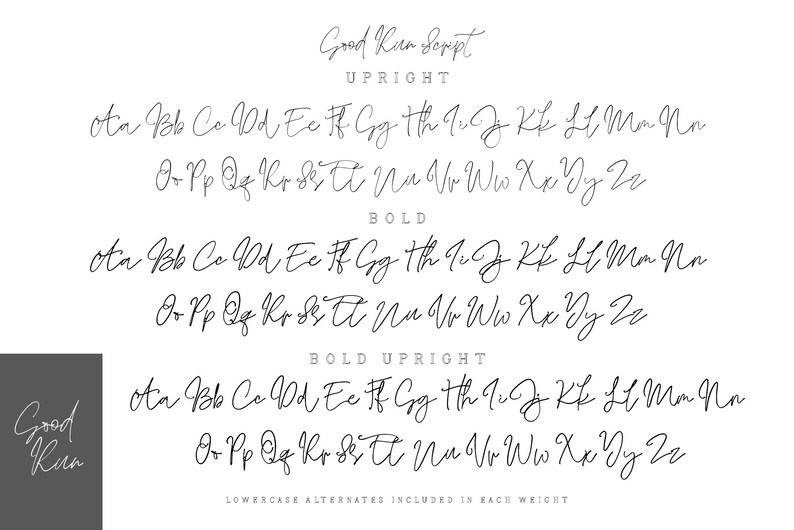 Good Run Script
UPRIGHT
Aa Bb Cc Dd Ee Ff Gg Hh Ii Jj Kk Ll Mm Nn
Oo Pp Qq Rr Ss Tt Uu Vv Ww Xx Yy Zz
BOLD
Aa Bb Cc Dd Ee Ff Gg Hh Ii Jj Kk Ll Mm Nn
Oo Pp Qq Rr Ss Tt Uu Vv Ww Xx Yy Zz
BOLD UPRIGHT
Aa Bb Cc Dd Ee Ff Gg Hh Ii Jj Kk Ll Mm Nn
Oo Pp Qq Rr Ss Tt Uu Vv Ww Xx Yy Zz
Good
Run
LOWERCASE ALTERNATES INCLUDED IN EACH WEIGHT